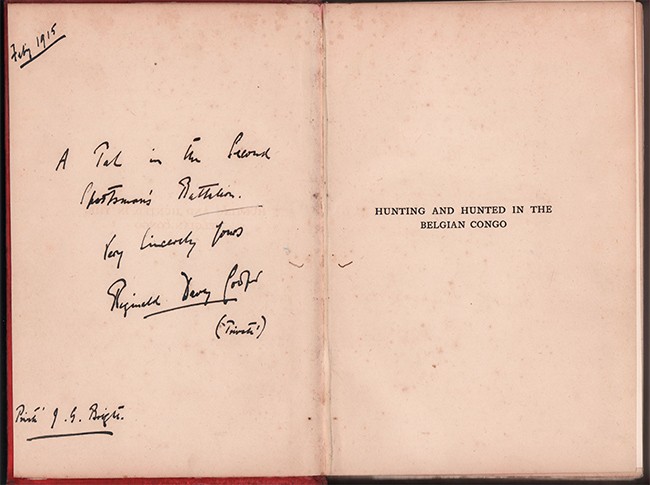 Feby 1915
A Pal in the Second
Sportsman's Battalion.
Very Sincerely Yours
Reginald Davey Cooper
('Private')
Private J. G. Bright.
HUNTING AND HUNTED IN THE
BELGIAN CONGO